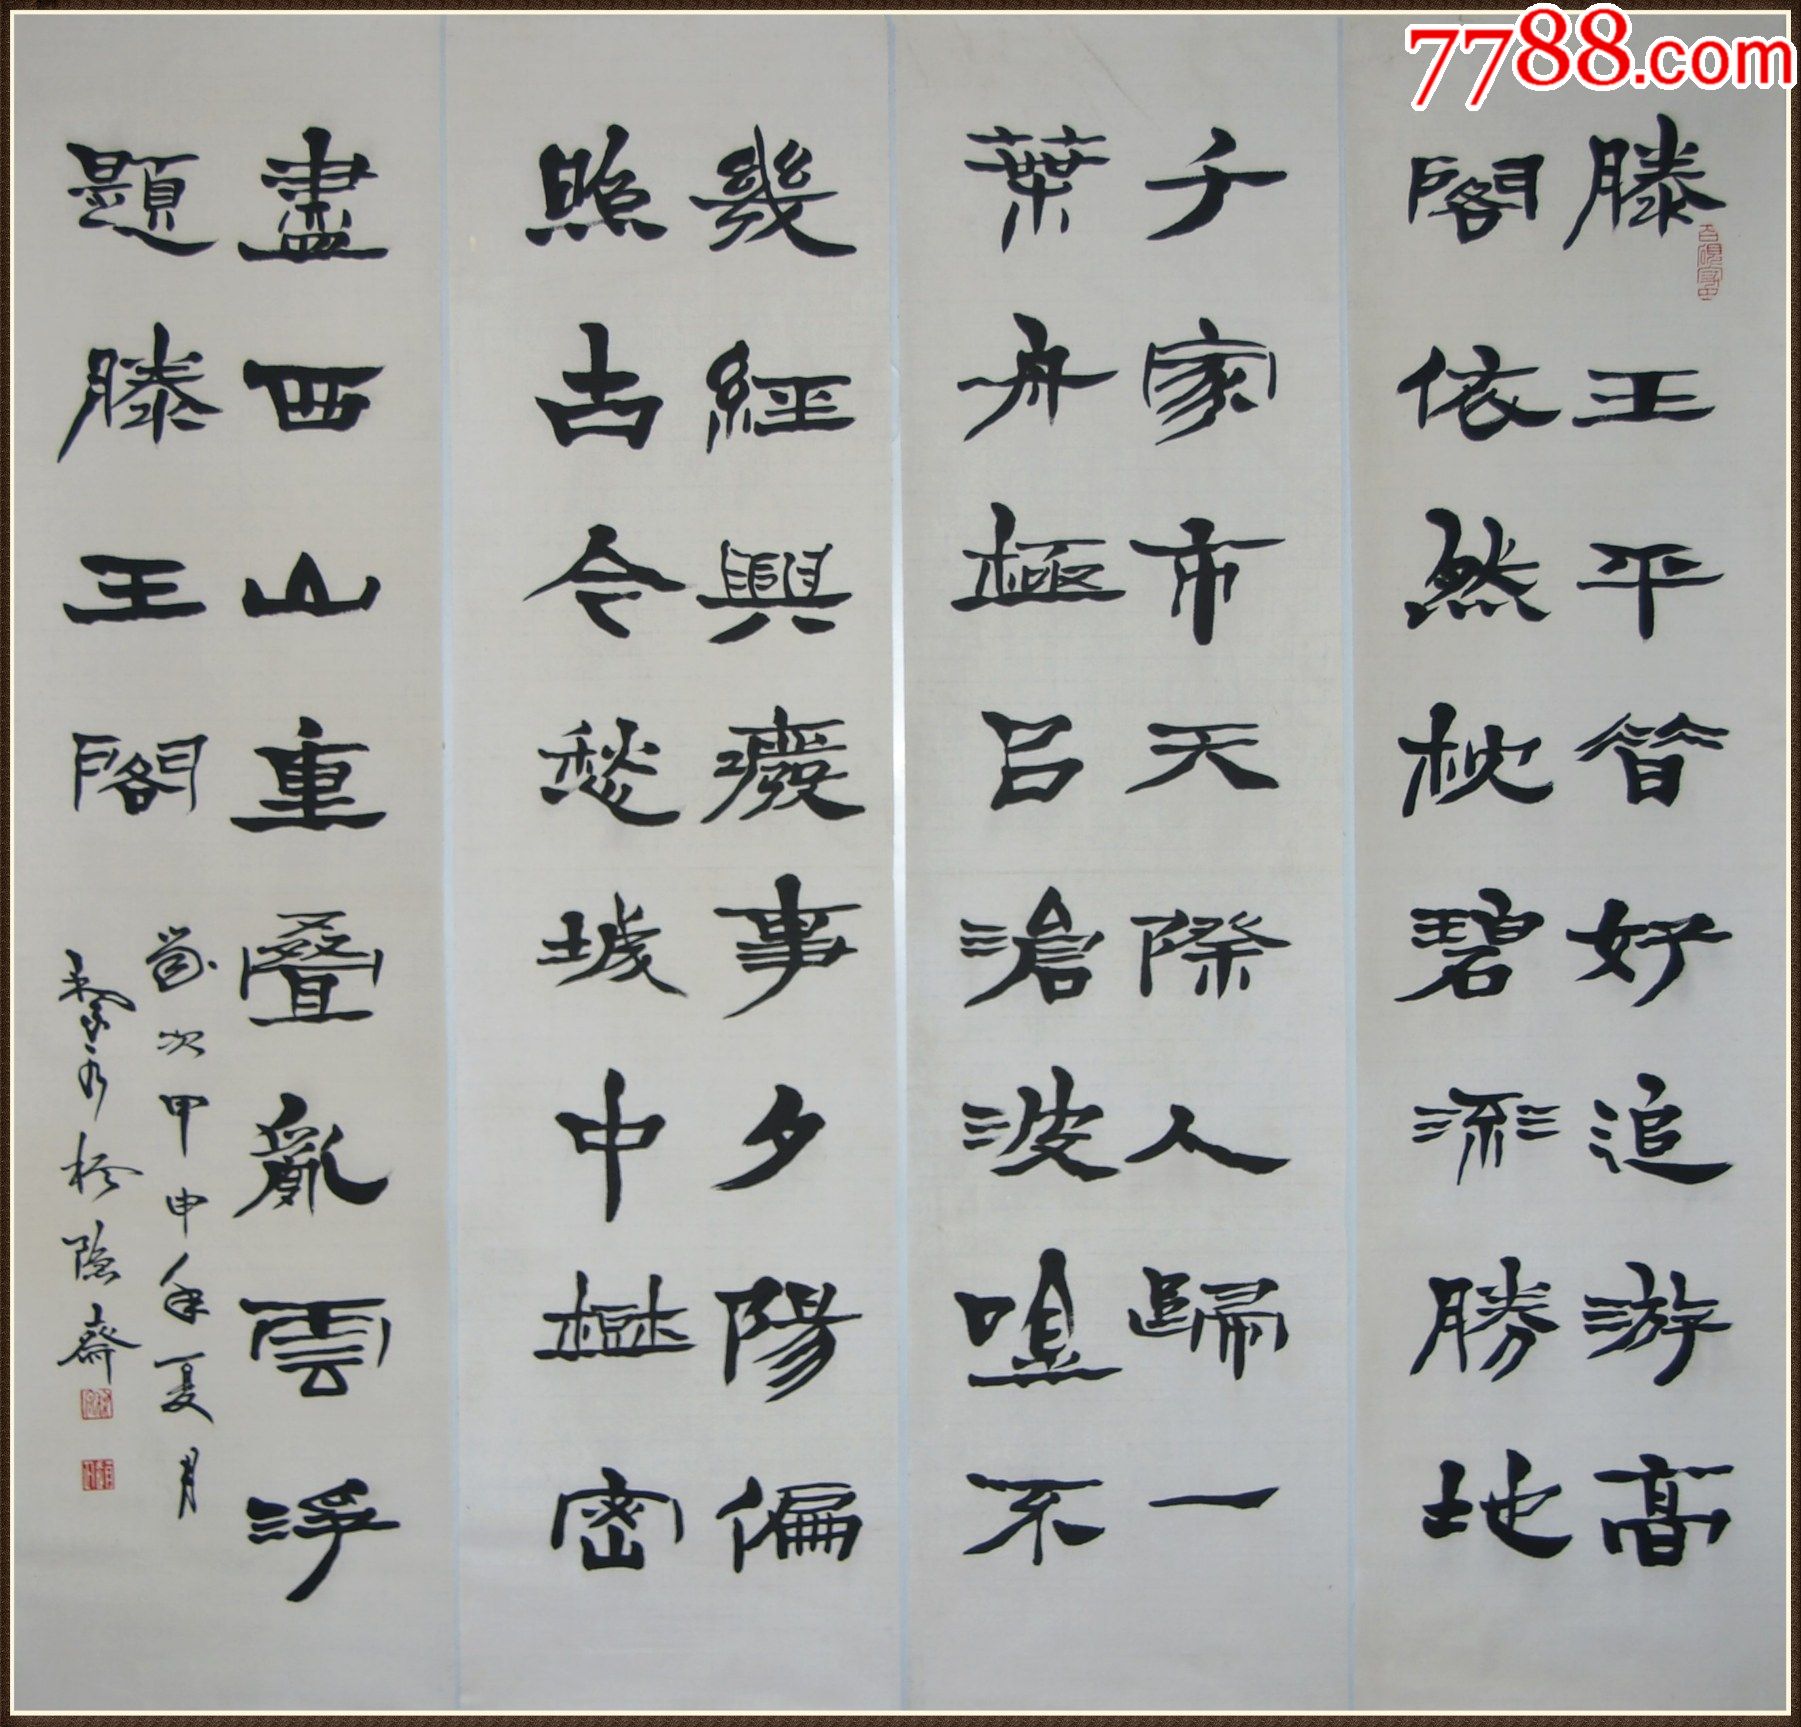 滕王平昔好追游高
閣依然枕碧流勝地
千家市天際人歸一
葉舟極吕滄波唫不
幾經興廢事夕陽偏
照古今愁城中樹密
盡西山重叠亂雲浮
題滕王閣
歲次甲申年夏月
松隐齋
7788.com